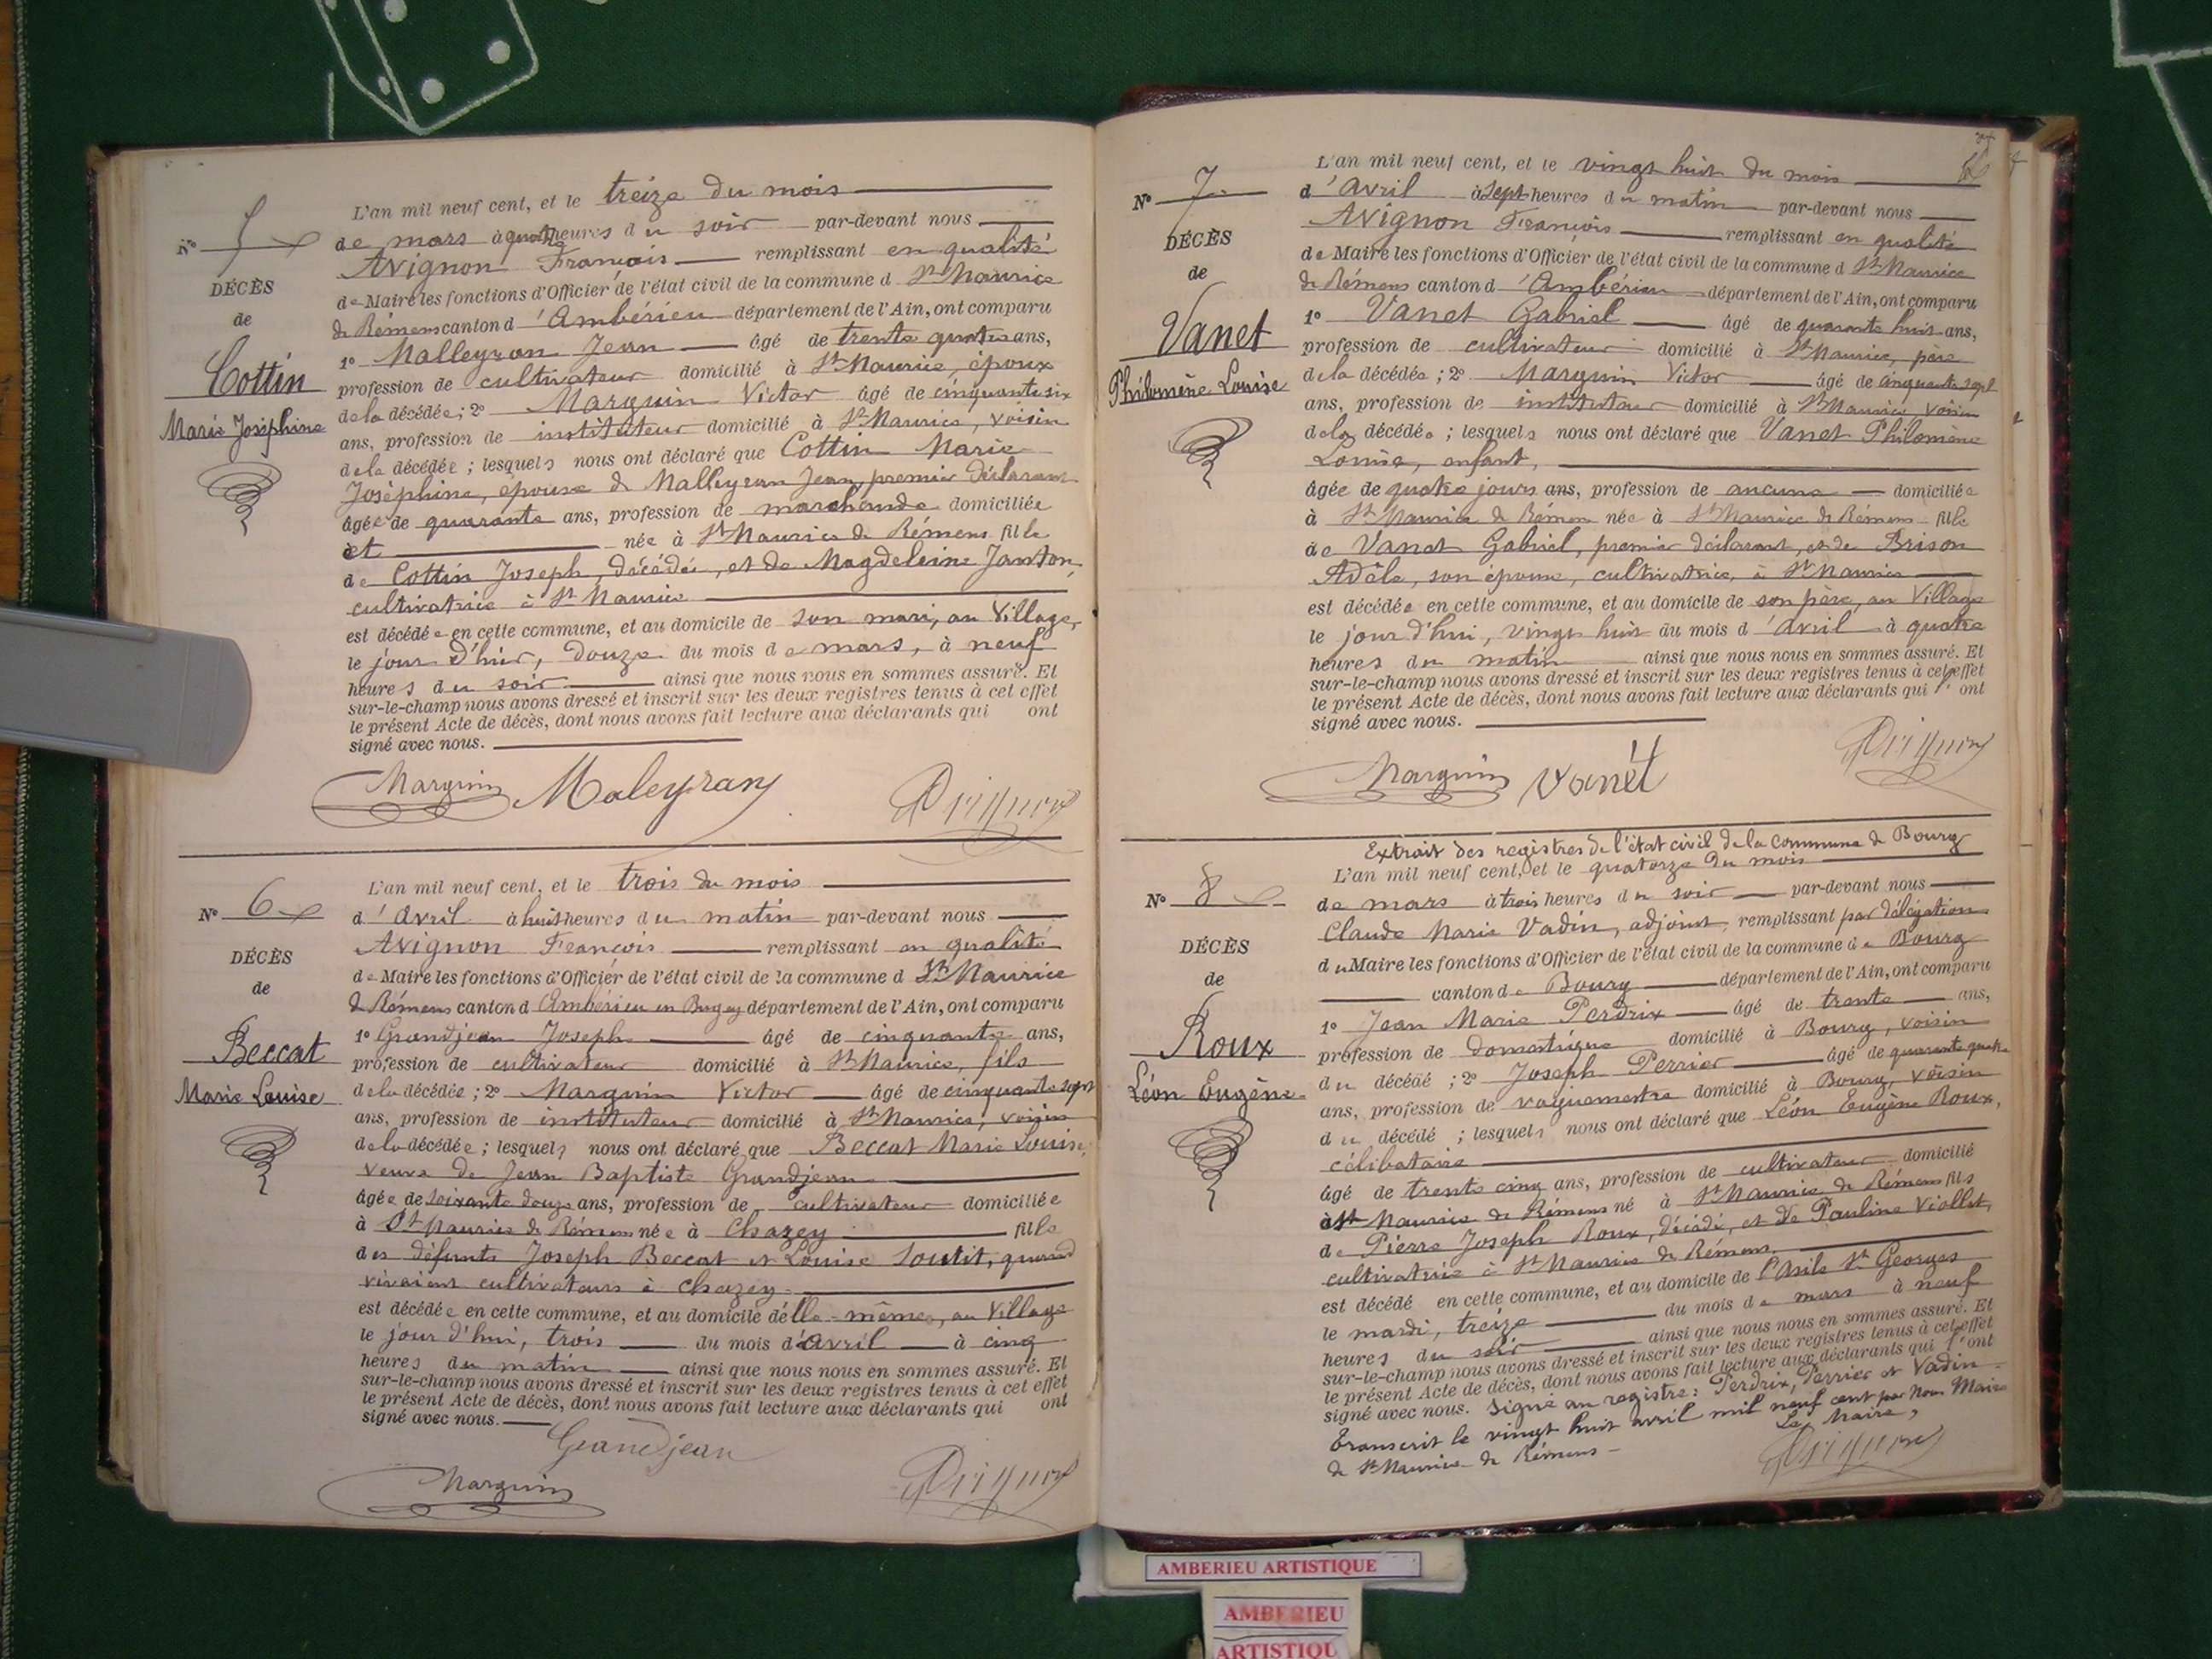 L'an mil neuf cent, et le treize du mois
N° 5
de mars à quatre heures du soir par-devant nous
Avignon François remplissant en qualité
DÉCÈS
de Maire les fonctions d'Officier de l'état civil de la commune d St Maurice
de
de Rémens canton d'Ambérieu département de l'Ain, ont comparu
1° Malleyran Jean âgé de trente quatre ans,
Cottin
profession de cultivateur domicilié à St Maurice, époux
Marie Joséphine
de la décédée ; 2° Marguin Victor âgé de cinquante six
ans, profession de instituteur domicilié à St Maurice, voisin
de la décédée ; lesquels nous ont déclaré que Cottin Marie
Joséphine, épouse de Malleyran Jean, premier déclarant
âgée de quarante ans, profession de marchande domiciliée
et née à St Maurice de Rémens fille
de Cottin Joseph, décédé, et de Magdeleine Janton,
cultivatrice à St Maurice
est décédée en cette commune, et au domicile de son mari, au Village,
le jour d'hier, douze du mois de mars, à neuf
heures du soir ainsi que nous nous en sommes assuré. Et
sur-le-champ nous avons dressé et inscrit sur les deux registres tenus à cet effet
le présent Acte de décès, dont nous avons fait lecture aux déclarants qui ont
signé avec nous.
Marguin Maleyran Avignon
L'an mil neuf cent, et le trois du mois
N° 6
d'Avril à huit heures du matin par-devant nous
Avignon François remplissant en qualité
DÉCÈS
de Maire les fonctions d'Officier de l'état civil de la commune d St Maurice
de
de Rémens canton d Ambérieu en Bugey département de l'Ain, ont comparu
1° Grandjean Joseph âgé de cinquante ans,
Beccat
profession de cultivateur domicilié à St Maurice, fils
Marie Louise
de la décédée ; 2° Marguin Victor âgé de cinquante sept
ans, profession de instituteur domicilié à St Maurice, voisin
de la décédée ; lesquels nous ont déclaré que Beccat Marie Louise,
veuve de Jean Baptiste Grandjean
âgée de soixante douze ans, profession de cultivateur domiciliée
à St Maurice de Rémens née à Chazey fille
des défunts Joseph Beccat et Louise Soutit, quand
vivaient cultivateurs à Chazey.
est décédée en cette commune, et au domicile d'elle-même, au Village
le jour d'hui, trois du mois d'avril à cinq
heures du matin ainsi que nous nous en sommes assuré. Et
sur-le-champ nous avons dressé et inscrit sur les deux registres tenus à cet effet
le présent Acte de décès, dont nous avons fait lecture aux déclarants qui ont
signé avec nous.
Grandjean
Marguin Avignon
L'an mil neuf cent, et le vingt huit du mois
N° 7
d'Avril à sept heures du matin par-devant nous
Avignon François remplissant en qualité
DÉCÈS
de Maire les fonctions d'Officier de l'état civil de la commune d St Maurice
de
de Rémens canton d'Ambérieu département de l'Ain, ont comparu
1° Vanet Gabriel âgé de quarante huit ans,
Vanet
profession de cultivateur domicilié à St Maurice, père
Philomène Louise
de la décédée ; 2° Marguin Victor âgé de cinquante sept
ans, profession de instituteur domicilié à St Maurice, voisin
de la décédée ; lesquels nous ont déclaré que Vanet Philomène
Louise, enfant,
âgée de quatre jours ans, profession de aucune domiciliée
à St Maurice de Rémens née à St Maurice de Rémens fille
de Vanet Gabriel, premier déclarant, et de Brison
Adèle, son épouse, cultivatrice, à St Maurice
est décédée en cette commune, et au domicile de son père, au Village
le jour d'hui, vingt huit du mois d'avril à quatre
heures du matin ainsi que nous nous en sommes assuré. Et
sur-le-champ nous avons dressé et inscrit sur les deux registres tenus à cet effet
le présent Acte de décès, dont nous avons fait lecture aux déclarants qui l'ont
signé avec nous.
Marguin Vanet Avignon
Extrait des registres de l'état civil de la commune de Bourg
L'an mil neuf cent, et le quatorze du mois
N° 8
de mars à trois heures du soir par-devant nous
Claude Marie Vadin, adjoint, remplissant par délégation
DÉCÈS
du Maire les fonctions d'Officier de l'état civil de la commune de Bourg
de
canton de Bourg département de l'Ain, ont comparu
1° Jean Marie Perdrix âgé de trente ans,
Roux
profession de domestique domicilié à Bourg, voisin
Léon Eugène
du décédé ; 2° Joseph Perrier âgé de quarante quatre
ans, profession de vaguemestre domicilié à Bourg, voisin
du décédé ; lesquels nous ont déclaré que Léon Eugène Roux,
célibataire
âgé de trente cinq ans, profession de cultivateur domicilié
à St Maurice de Rémens né à St Maurice de Rémens fils
de Pierre Joseph Roux, décédé, et de Pauline Viollet,
cultivatrice à St Maurice de Rémens.
est décédé en cette commune, et au domicile de l'Asile St Georges
le mardi, treize du mois de mars à neuf
heures du soir ainsi que nous nous en sommes assuré. Et
sur-le-champ nous avons dressé et inscrit sur les deux registres tenus à cet effet
le présent Acte de décès, dont nous avons fait lecture aux déclarants qui l'ont
signé avec nous. Signé au registre : Perdrix, Perrier et Vadin
Transcrit le vingt huit avril mil neuf cent par nous Maire
de St Maurice de Rémens
Le Maire,
Avignon
AMBERIEU ARTISTIQUE
AMBERIEU
ARTISTIQU